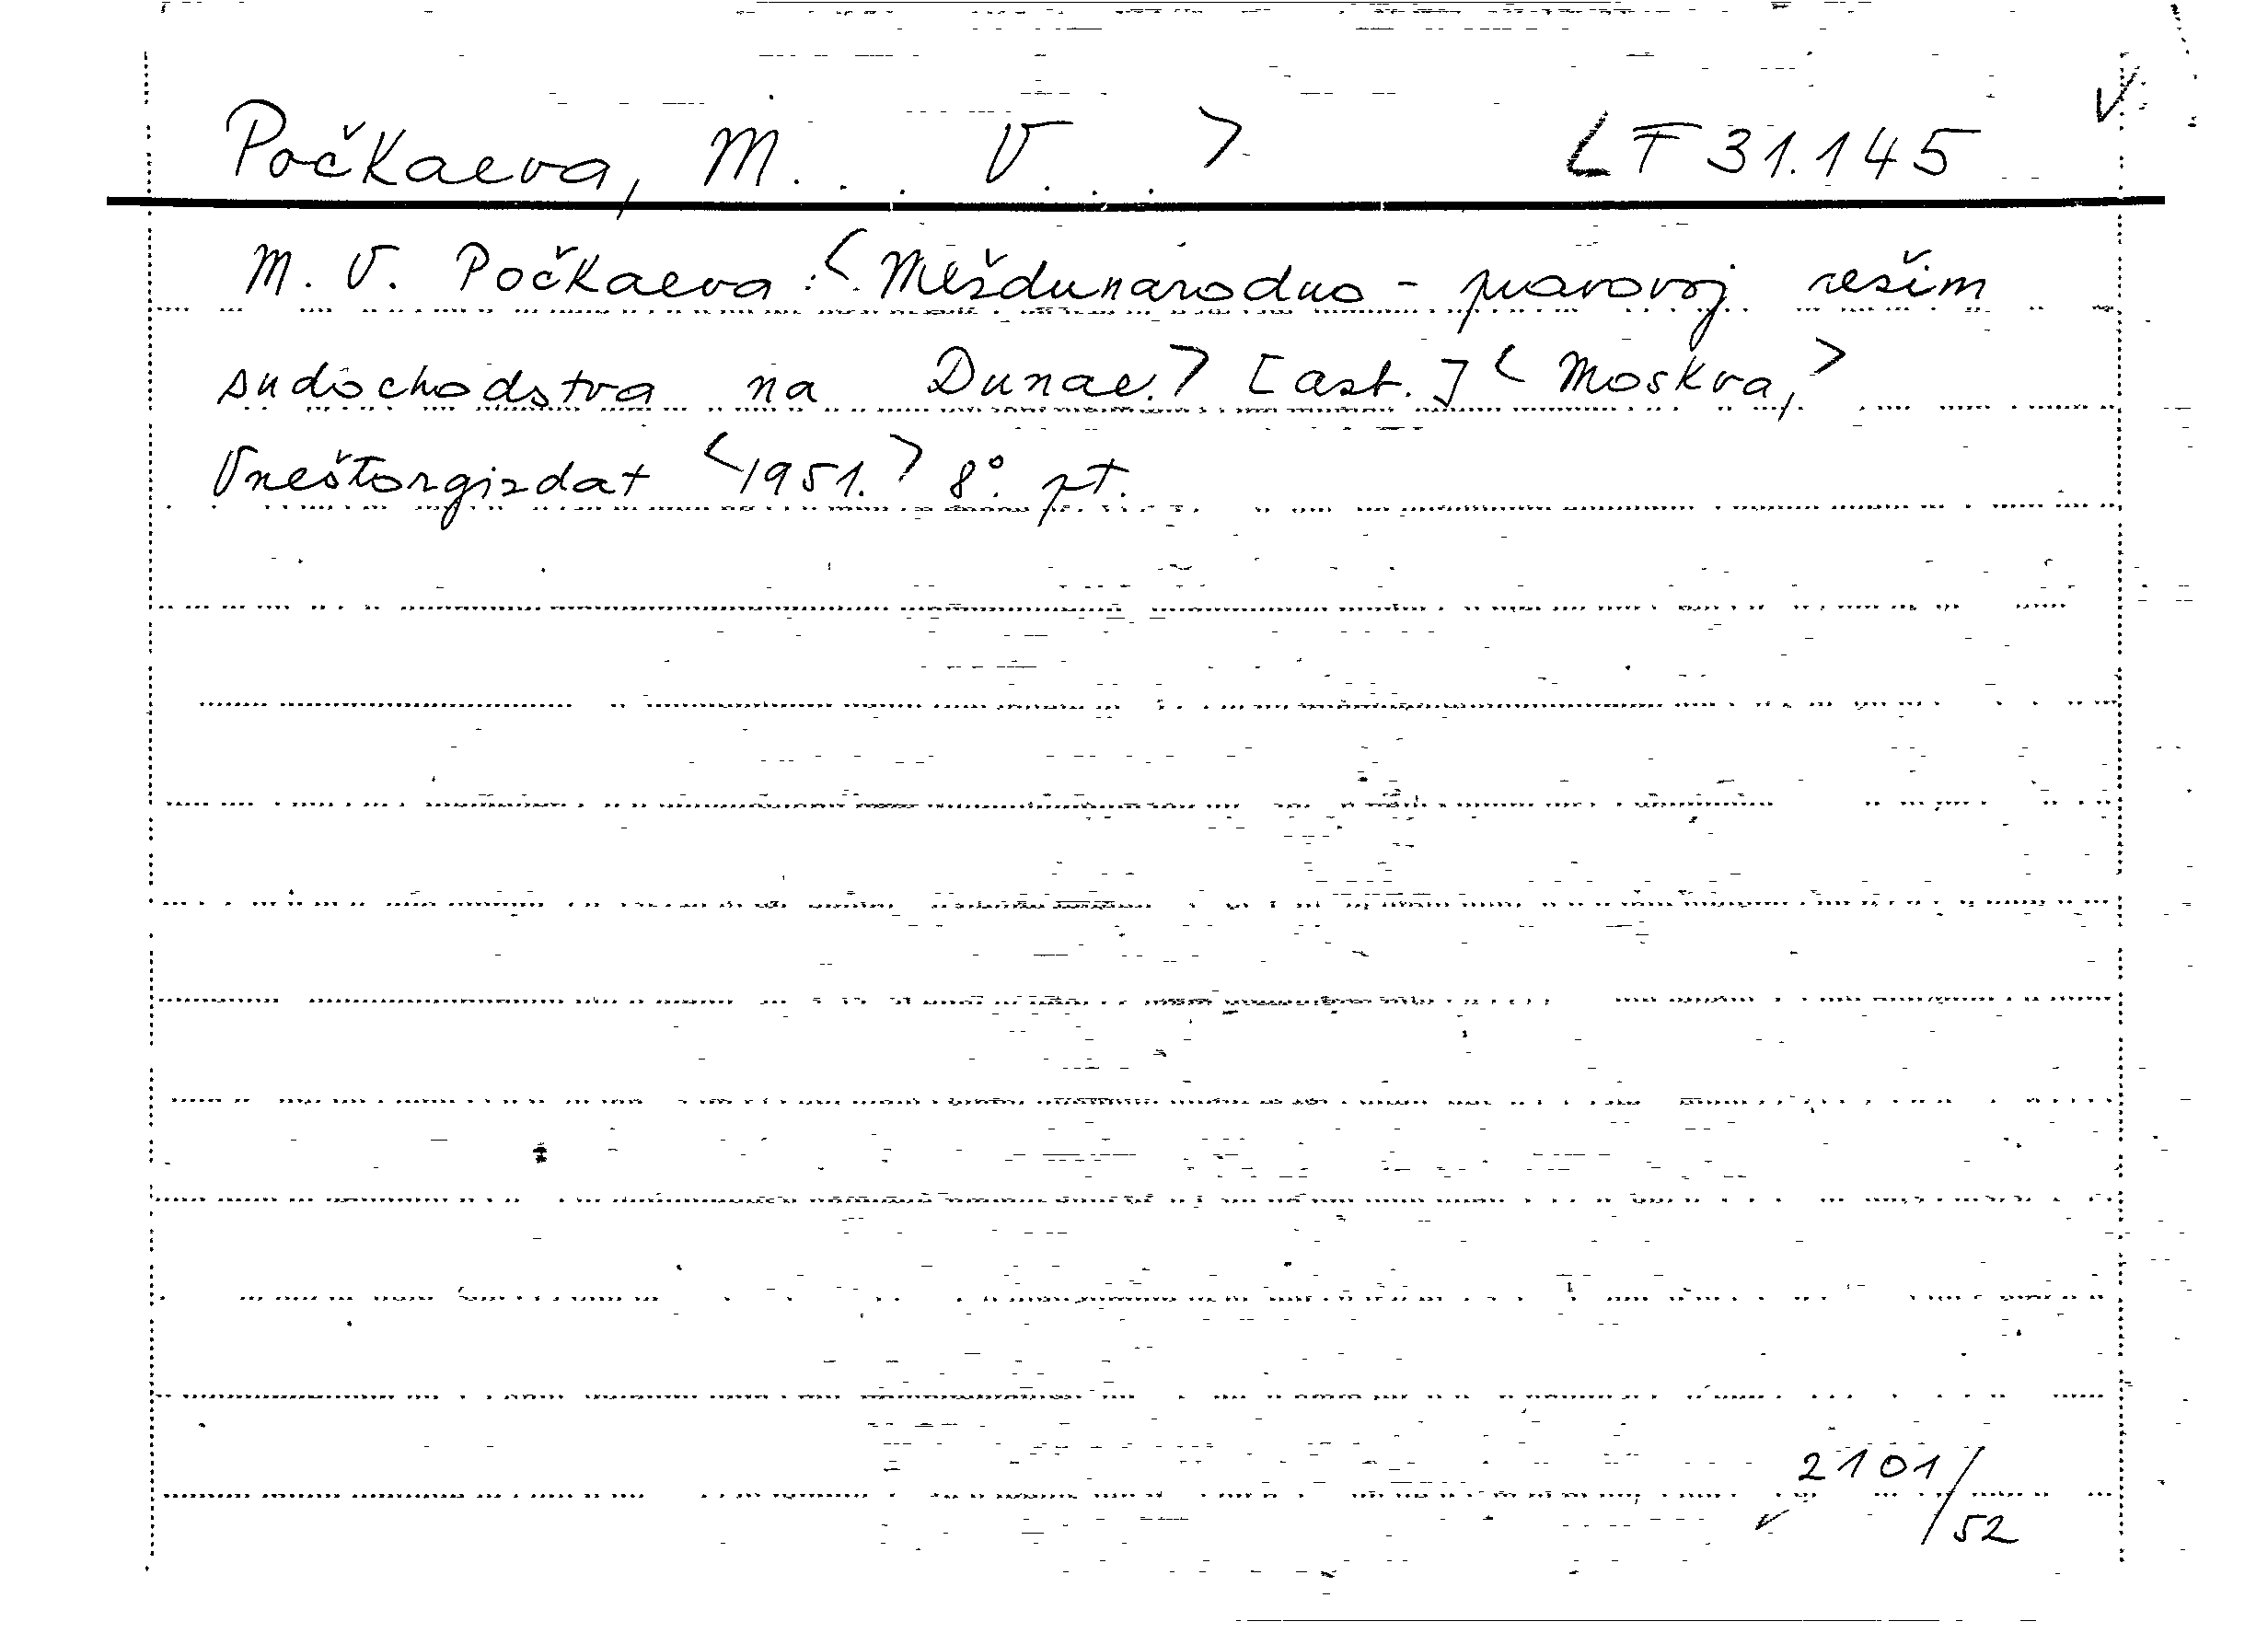 Počkaeva, M. . . V. . . > < F 31.145
M. V. Počkaeva: < Meždunarodno - pravovoj režim
sudochodstva na Dunae. > [ast.] < Moskva, >
Vneštorgizdat < 1951. > 8°. pt.
2101/
52